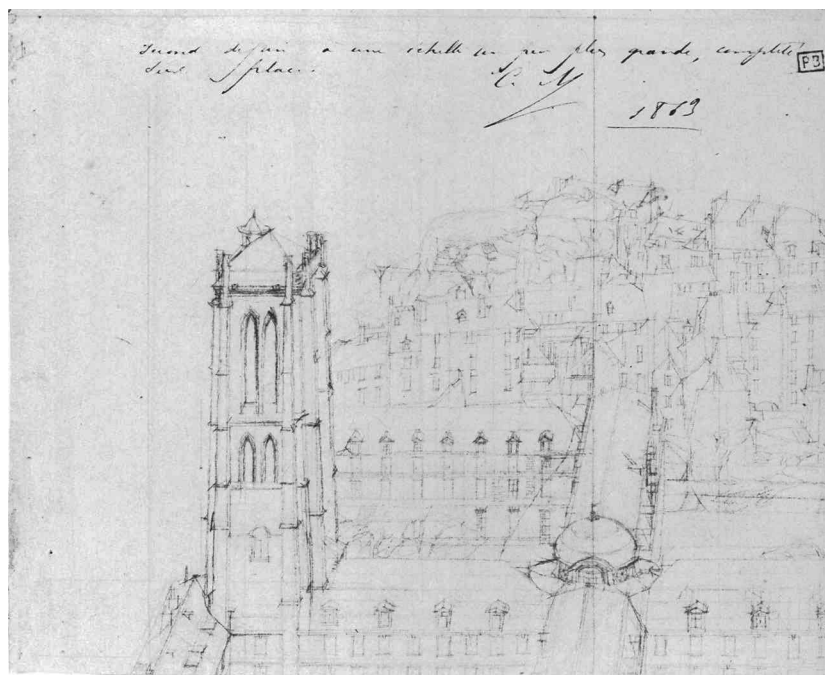 Second dessin à une échelle un peu plus grande, complété
sur place.
C. M
1863
P3